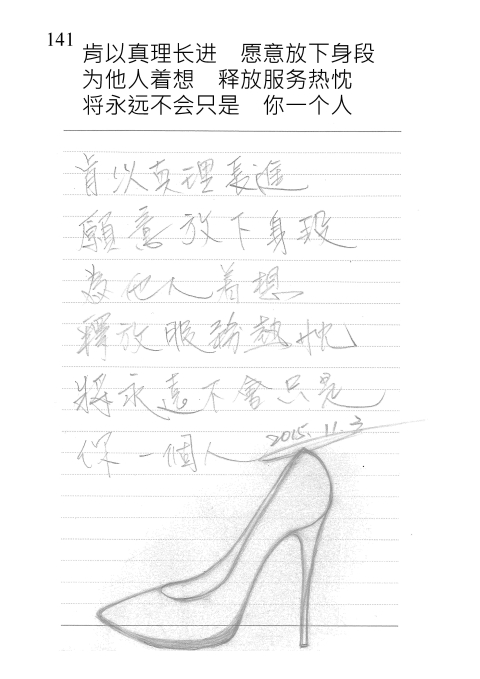 141
肯以真理长进　愿意放下身段
为他人着想　释放服务热忱
将永远不会只是　你一个人
肯以真理長進
願意放下身段
為他人着想
釋放服務熱忱
將永遠不會只是
你一個人
2015.11.3